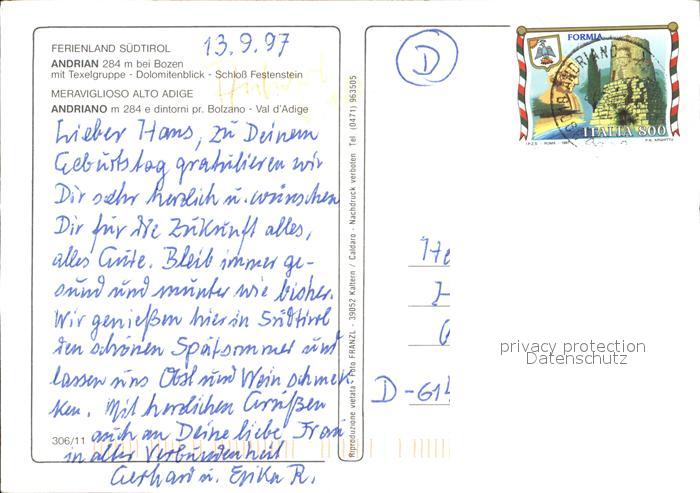 FERIENLAND SÜDTIROL
13.9.97
ANDRIAN 284 m bei Bozen
mit Texelgruppe - Dolomitenblick - Schloß Festenstein
MERAVIGLIOSO ALTO ADIGE
ANDRIANO m 284 e dintorni pr. Bolzano - Val d'Adige
Lieber Hans, zu Deinem
Geburtstag gratulieren wir
Dir sehr herzlich u. wünschen
Dir für die Zukunft alles,
alles Gute. Bleib immer ge-
sund und munter wie bisher.
Wir genießen hier in Südtirol
den schönen Spätsommer und
lassen uns Obst und Wein schmek-
ken. Mit herzlichen Grüßen
auch an Deine liebe Frau
in alter Verbundenheit
Gerhard u. Erika R.
306/11
Riproduzione vietata - Foto FRANZL - 39052 Kaltern / Caldaro - Nachdruck verboten Tel. (0471) 963505
D
FORMIA
ITALIA 800
I.P.Z.S. - ROMA - 1997
ANDRIANO
He
H
D-614
privacy protection
Datenschutz